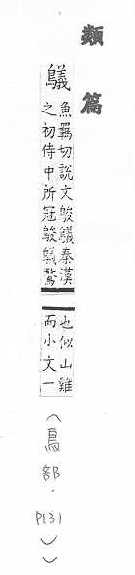 類篇
鸃
魚羈切說文鵔鸃秦漢
之初侍中所冠鵔鸃鷩
也似山雞
而小文一
（鳥部．P131））